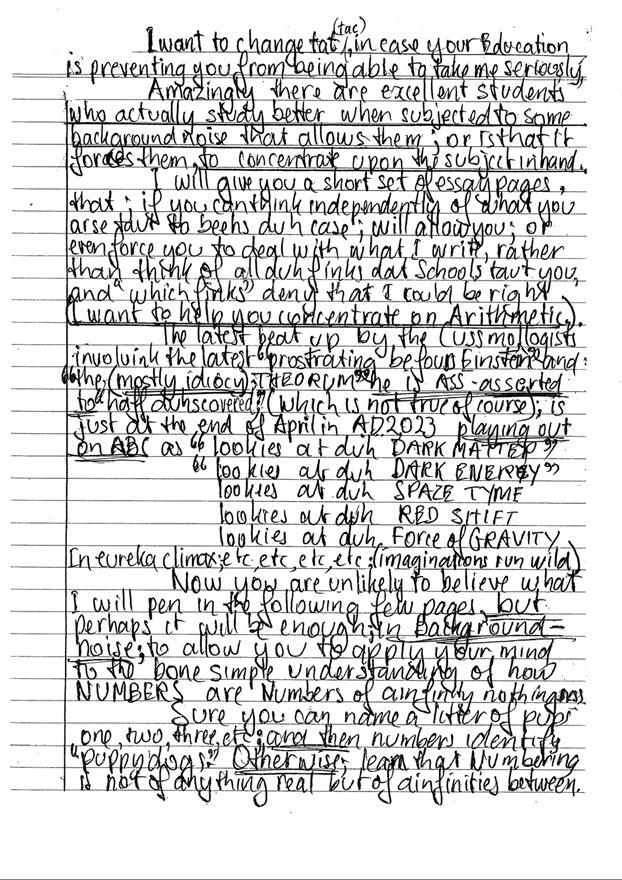 (tac)
I want to change tat /, in case your Education
is preventing you from being able to take me seriously,
Amazingly there are excellent students
who actually study better when subjected to some
background noise that allows them; or is that it
forces them, to concentrate upon the subject in hand.
I will give you a short set of essay pages,
that; if you can think independently of what you
arse taut to beehs duh case; will allow you; or
even force you to deal with what I write, rather
than think of all duh finks dat Schools taut you,
and "which finks" deny that I could be right
(I want to help you concentrate on Arithmetic.).
The latest beat up by the Cussmollogists
involvink the latest "prostrating befour Einstein" and:
"the, (mostly idiocy); THEORUM" he is ASS-asserted
to "haff duhscovered"; (which is not true of course); is
just at the end of April in AD.2023 playing out
on ABC as "lookies at duh DARK MATTER"
"lookies at duh DARK ENERGY"
lookies at duh SPAZE TYME
lookies at duh RED SHIFT
lookies at duh Force of GRAVITY
In eureka climax; etc, etc, etc, etc: (imaginations run wild)
Now you are unlikely to believe what
I will pen in the following few pages, but
perhaps it will be enough; in Background-
noise; to allow you to apply your mind
to the bone simple understanding of how
NUMBERS are Numbers of ainfinity nothingness
Sure you can name a litter of pups
one, two, three, etc; and then numbers identify
"puppy dogs." Otherwise; learn that Numbering
is not of anything real but of ainfinities between.